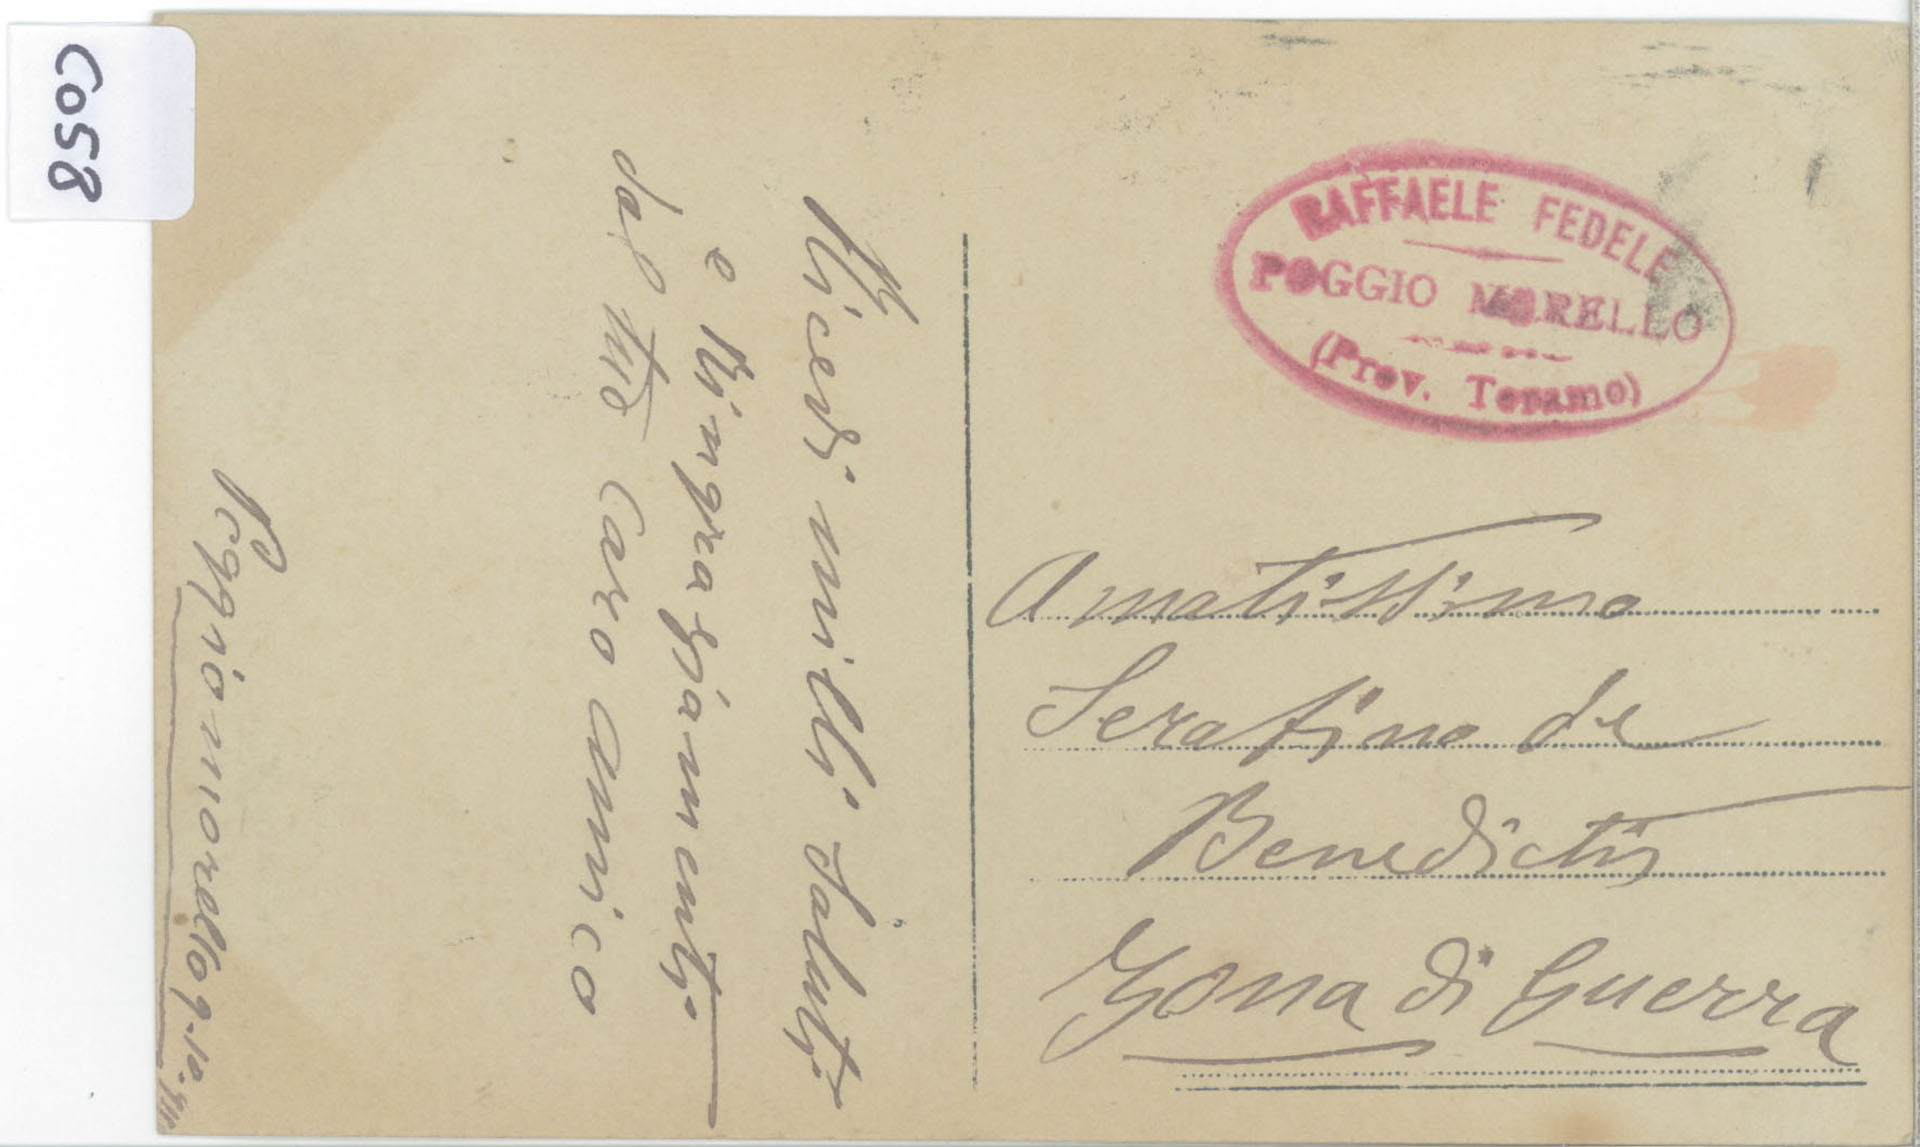 C058
Ricevi milli saluti
e ringraziamenti
dal tuo caro amico
Poggio morello 9-10-
RAFFAELE FEDELE
POGGIO MORELLO
(Prov. Teramo)
Amatissimo
Serafino de
Benedictis
Zona di Guerra